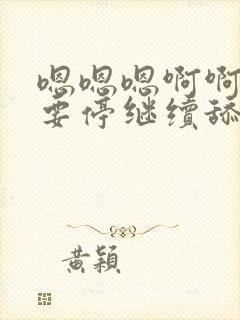 嗯嗯嗯啊啊
要停继续舔
黄颖